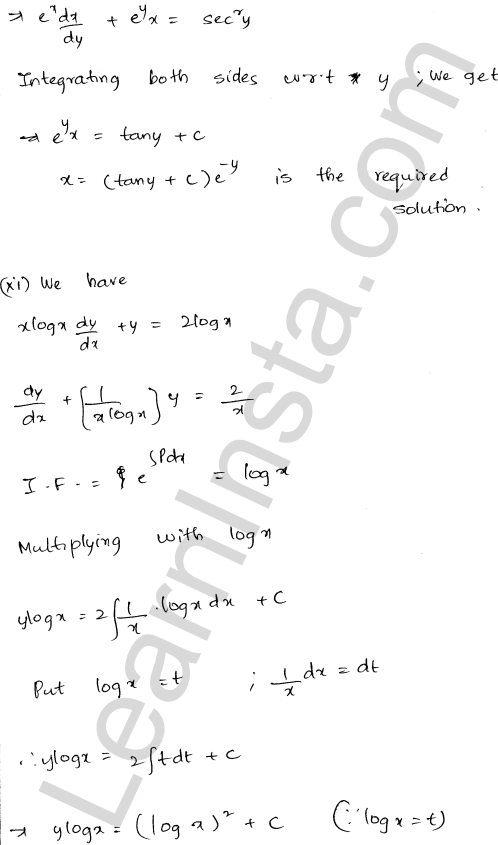 ⇒ e^x dx/dy + e^y x = sec²y
Integrating both sides w.r.t y ; we get
⇒ e^y x = tany + c
x = (tany + c) e^-y is the required
solution.
(xi) We have
xlogx dy/dx + y = 2logx
dy/dx + (1/xlogx) y = 2/x
I.F. = e^∫Pdx = logx
Multiplying with logx
ylogx = 2∫1/x . logx dx + C
Put logx = t ; 1/x dx = dt
∴ ylogx = 2∫tdt + C
→ ylogx = (logx)² + C (∵ logx = t)
LearnInsta.com